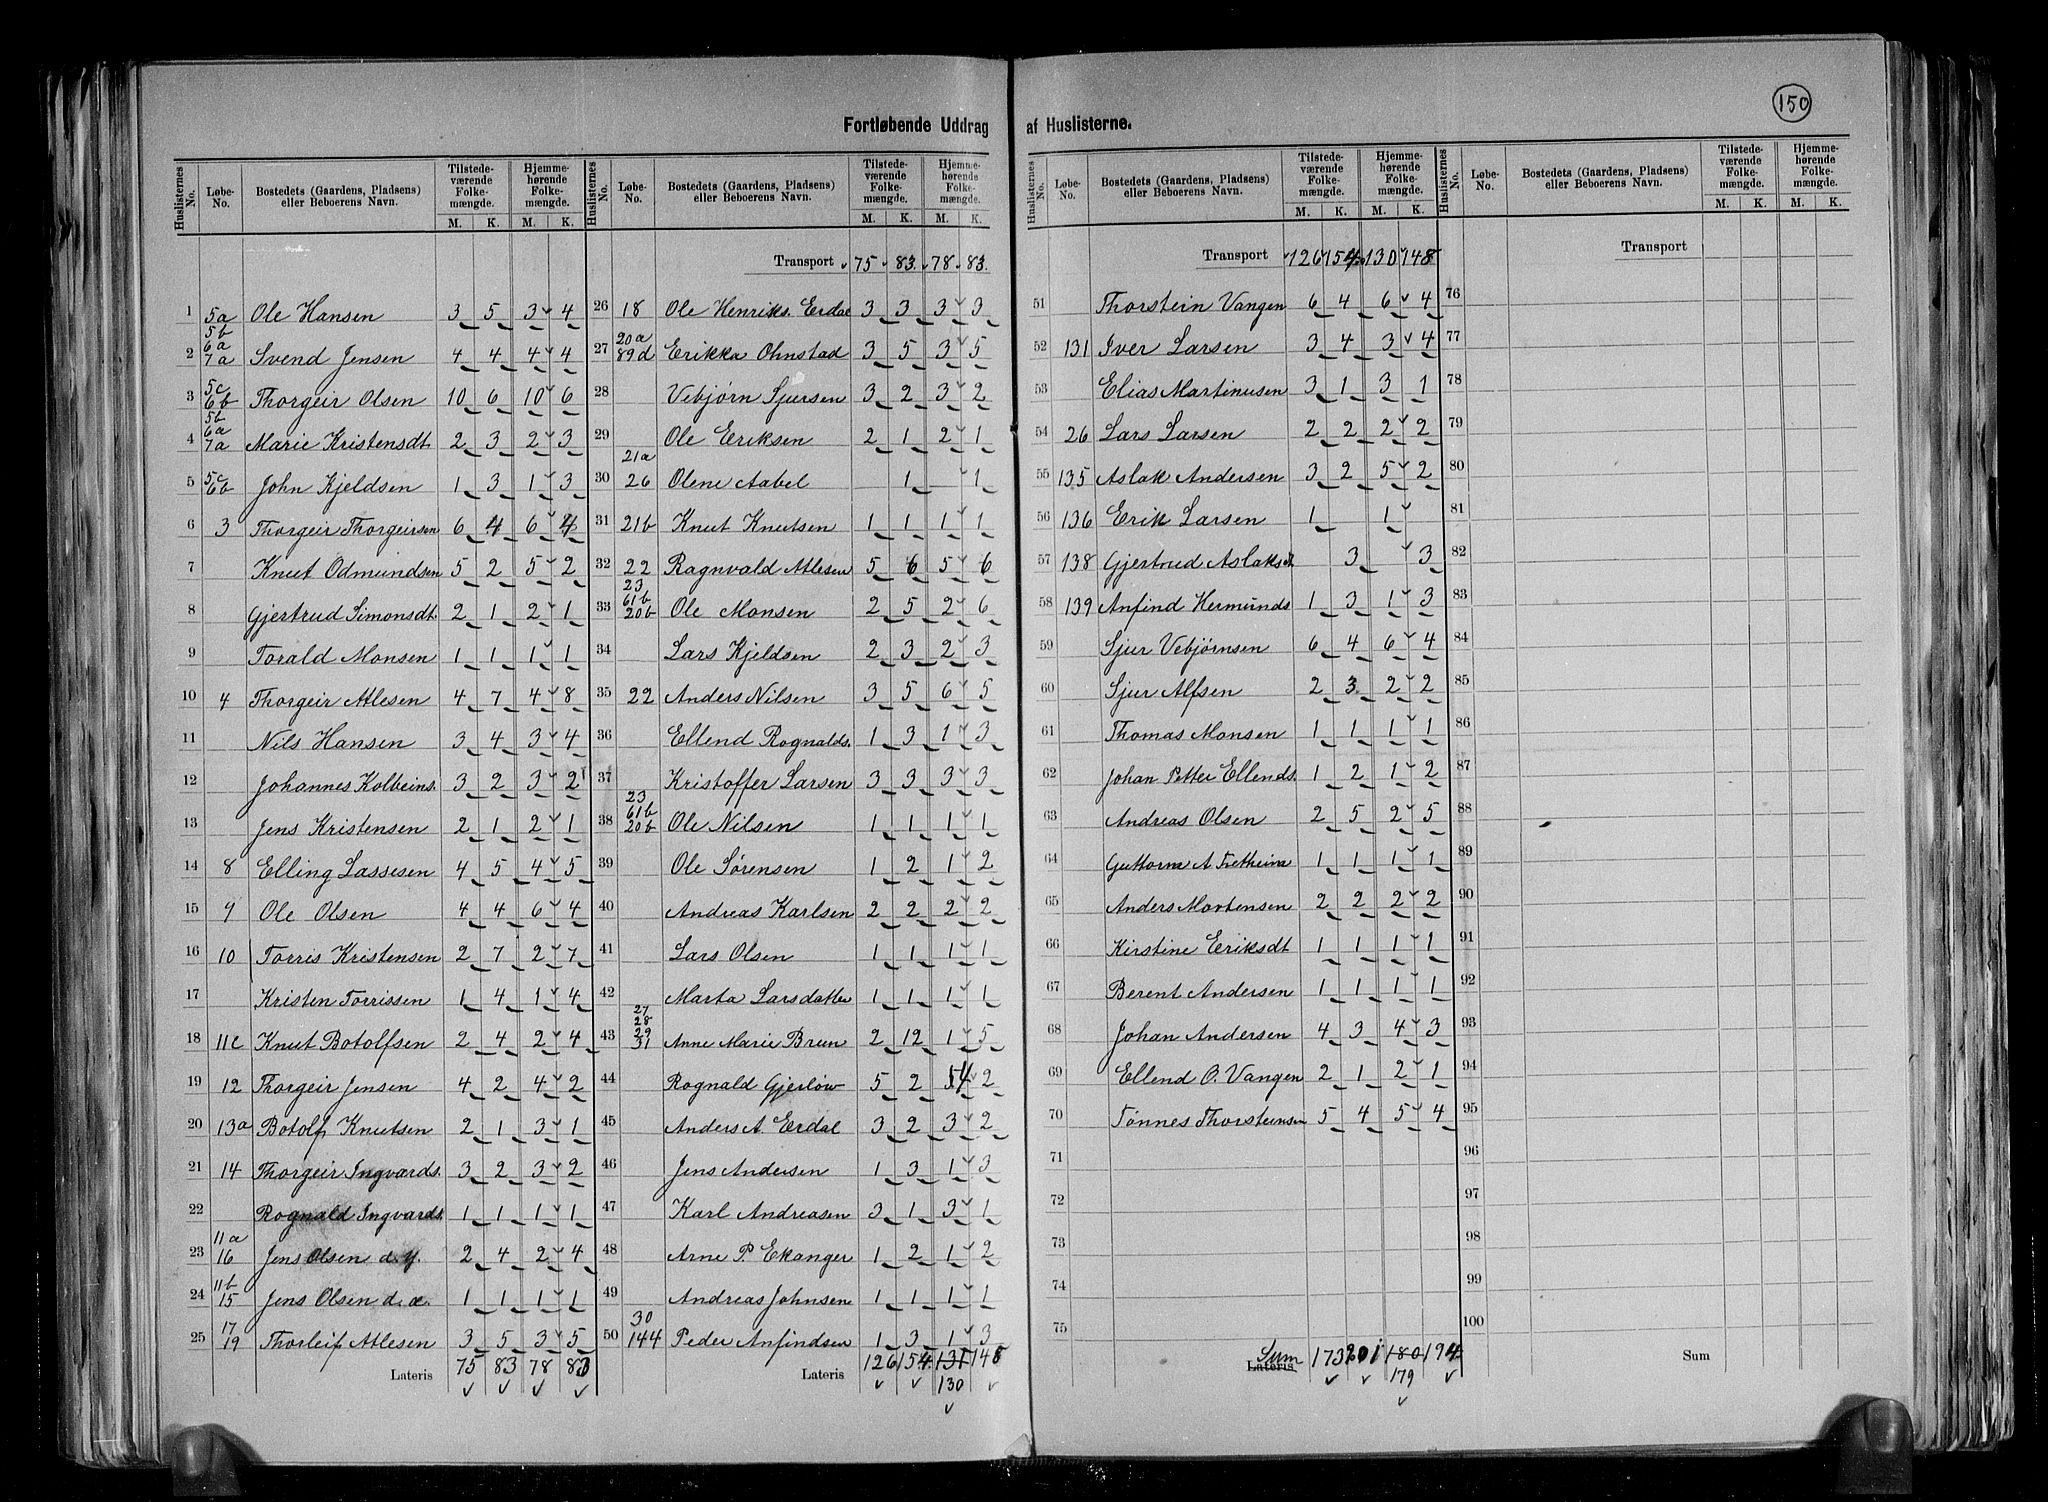 150
Fortløbende Uddrag af Huslisterne.
Huslisternes No. Løbe-No. Bostedets (Gaardens, Pladsens) eller Beboerens Navn. Tilstedeværende Folkemængde. M. K. Hjemmehørende Folkemængde. M. K.
1 5a Ole Hansen 3 5 3 4
2 5b 6a 7a Svend Jensen 4 4 4 4
3 5c 6b Thorgeir Olsen 10 6 10 6
4 5b 6a 7a Marie Kristensdt 2 3 2 3
5 5c 6b John Kjeldsen 1 3 1 3
6 3 Thorgeir Thorgeirsen 6 4 6 4
7 Knut Odmundsen 5 2 5 2
8 Gjertrud Simonsdt. 2 1 2 1
9 Torald Monsen 1 1 1 1
10 4 Thorgeir Atlesen 4 7 4 8
11 Nils Hansen 3 4 3 4
12 Johannes Kolbeins. 3 2 3 2
13 Jens Kristensen 2 1 2 1
14 8 Elling Lassesen 4 5 4 5
15 9 Ole Olsen 4 4 6 4
16 10 Torris Kristensen 2 7 2 7
17 Kristen Torrissen 1 4 1 4
18 11c Knut Botolfsen 2 4 2 4
19 12 Thorgeir Jensen 4 2 4 2
20 13a Botolf Knutsen 2 1 3 1
21 14 Thorgeir Ingvards. 3 2 3 2
22 Rognald Ingvards. 1 1 1 1
23 11a 16 Jens Olsen d. y. 2 4 2 4
24 11b 15 Jens Olsen d. æ. 1 1 1 1
25 17 19 Thorleif Atlesen 3 5 3 5
Lateris 75 83 78 83
Huslisternes No. Løbe-No. Bostedets (Gaardens, Pladsens) eller Beboerens Navn. Tilstedeværende Folkemængde. M. K. Hjemmehørende Folkemængde. M. K.
Transport 75 83 78 83
26 18 Ole Henriks. Erdal 3 3 3 3
27 20a 89d Erikka Ohnstad 3 5 3 5
28 Vebjørn Sjursen 3 2 3 2
29 Ole Eriksen 2 1 2 1
30 21a 26 Olene Aabel 1 1
31 21b Knut Knutsen 1 1 1 1
32 22 Ragnvald Atlesen 5 6 5 6
33 23 61b 20b Ole Monsen 2 5 2 6
34 Lars Kjeldsen 2 3 2 3
35 22 Anders Nilsen 3 5 6 5
36 Ellend Rognalds. 1 3 1 3
37 Kristoffer Larsen 3 3 3 3
38 23 61b 20b Ole Nilsen 1 1 1 1
39 Ole Sørensen 1 2 1 2
40 Andreas Karlsen 2 2 2 2
41 Lars Olsen 1 1 1 1
42 Marta Larsdatter 1 1 1 1
43 27 28 29 31 Anne Marie Bruun 2 12 1 5
44 Rognald Gjerløw 5 2 5 4 2
45 Anders A Erdal 3 2 3 2
46 Jens Andersen 1 3 1 3
47 Karl Andreasen 3 1 3 1
48 Arne P. Ekanger 1 2 1 2
49 Andreas Johnsen 1 1 1 1
50 30 144 Peder Anfindsen 1 3 1 3
Lateris 126 154 131 148
130
Huslisternes No. Løbe-No. Bostedets (Gaardens, Pladsens) eller Beboerens Navn. Tilstedeværende Folkemængde. M. K. Hjemmehørende Folkemængde. M. K.
Transport 126 154 130 148
51 Thorstein Vangen 6 4 6 4
52 131 Iver Larsen 3 4 3 4
53 Elias Martinusen 3 1 3 1
54 26 Lars Larsen 2 2 2 2
55 135 Aslak Andersen 3 2 5 2
56 136 Erik Larsen 1 1
57 138 Gjertrud Aslaksd. 3 3
58 139 Anfind Hermunds 1 3 1 3
59 Sjur Vebjørnsen 6 4 6 4
60 Sjur Alfsen 2 3 2 2
61 Thomas Monsen 1 1 1 1
62 Johan Petter Ellends. 1 2 1 2
63 Andreas Olsen 2 5 2 5
64 Guttorm A Fretheim 1 1 1 1
65 Anders Mortensen 2 2 2 2
66 Kirstine Eriksdt 1 1 1 1
67 Berent Andersen 1 1 1 1
68 Johan Andersen 4 3 4 3
69 Ellend O. Vangen 2 1 2 1
70 Tønnes Thorsteinsen 5 4 5 4
71
72
73
74
75
Sum
Lateris 173 201 180 194
179
Huslisternes No. Løbe-No. Bostedets (Gaardens, Pladsens) eller Beboerens Navn. Tilstedeværende Folkemængde. M. K. Hjemmehørende Folkemængde. M. K.
Transport
76
77
78
79
80
81
82
83
84
85
86
87
88
89
90
91
92
93
94
95
96
97
98
99
100
Sum